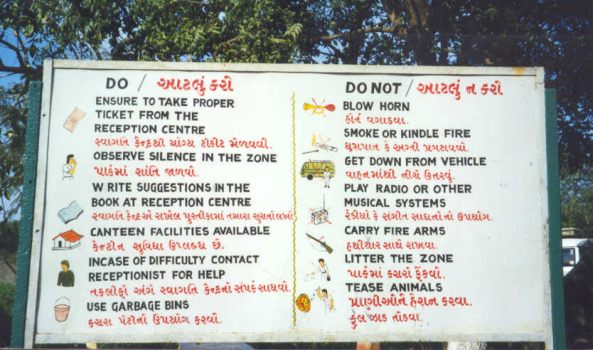 DO / આટલું કરો
ENSURE TO TAKE PROPER
TICKET FROM THE
RECEPTION CENTRE
સ્વાગત કેન્દ્રથી યોગ્ય ટીકીટ મેળવવી.
OBSERVE SILENCE IN THE ZONE
પાર્કમાં શાંતિ જાળવી.
WRITE SUGGESTIONS IN THE
BOOK AT RECEPTION CENTRE
સ્વાગત કેન્દ્રએ રાખેલ પુસ્તીકામાં તમારા સુચનો લખો
CANTEEN FACILITIES AVAILABLE
કેન્ટીન સુવિધા ઉપલબ્ધ છે.
INCASE OF DIFFICULTY CONTACT
RECEPTIONIST FOR HELP
તકલીફો અંગે સ્વાગત કેન્દ્રનો સંપર્ક સાધવો.
USE GARBAGE BINS
કચરા પેટીનો ઉપયોગ કરવો.
DO NOT / આટલું ન કરો
BLOW HORN
હોર્ન વગાડવા.
SMOKE OR KINDLE FIRE
ધુમ્રપાન કે અગ્ની પ્રગટાવવી.
GET DOWN FROM VEHICLE
વાહનમાંથી નીચે ઉતરવું.
PLAY RADIO OR OTHER
MUSICAL SYSTEMS
રેડીયો કે સંગીત સાધનોનો ઉપયોગ.
CARRY FIRE ARMS
હથીયાર સાથે રાખવા.
LITTER THE ZONE
પાર્કમાં કચરો ફેંકવો.
TEASE ANIMALS
પ્રાણીઓને હેરાન કરવા.
ફુલ ઝાડ તોડવા.